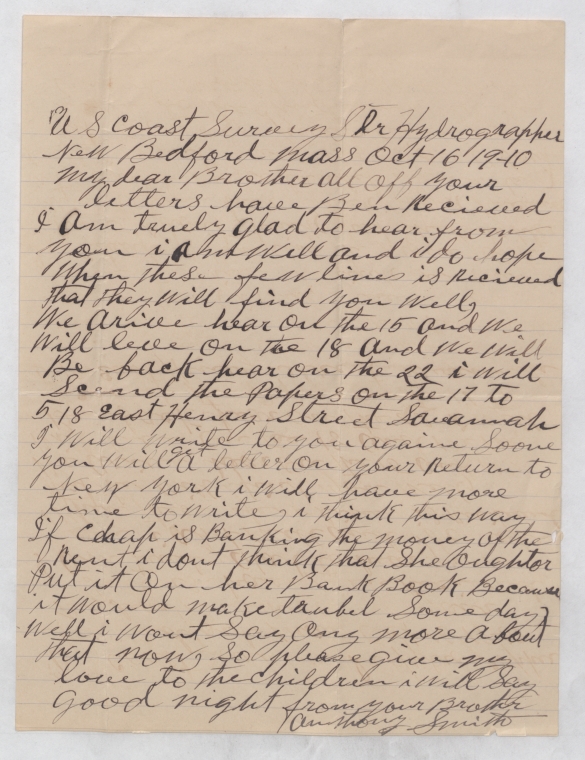 U S Coast Survey Str Hydrographer
New Bedford Mass Oct 16 1910
My dear Brother all off your
letters have Ben Recieved
I am truely glad to hear from
you i am Well and i do hope
When these few lines is Recieved
that they Will find you Well,
We arive hear on the 15 and We
Will leve on the 18 and We Will
Be back hear on the 22 i Will
Send the Papers on the 17 to
518 East Henry Street Savannah
I Will Write to you againe Soone
you Will get a letter on your Return to
New York i Will have more
time to Write, i think this Way
If Chap is Banking the money of the
Runt i dont think that She Oughtor
Put it On her Bank Book Because
it Would make trubel Someday,
Well i Wont Say Ony more About
that now, So please give my
love to the children i Will Say
Good night from your Brother
Anthony Smith